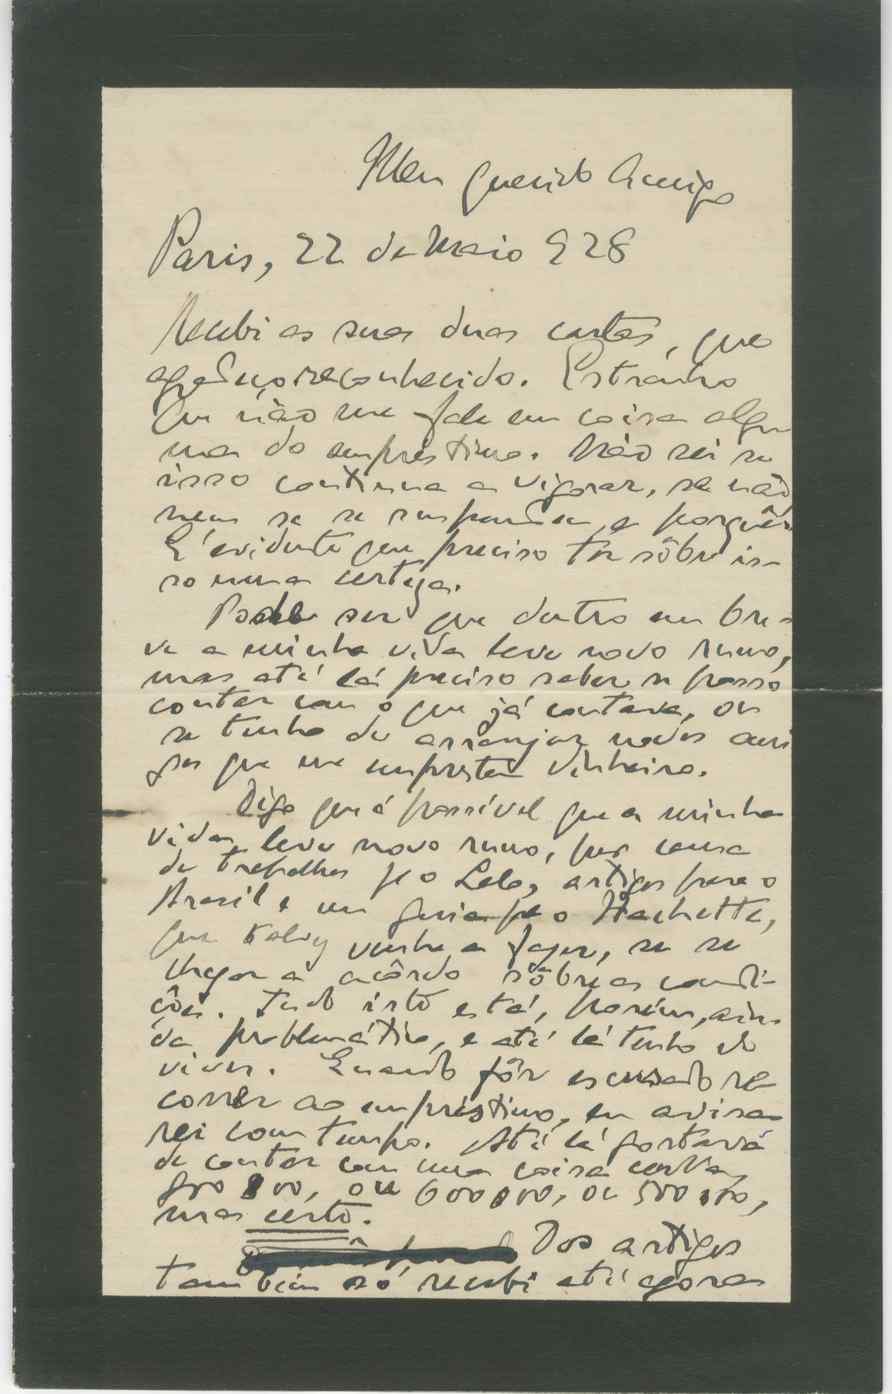 Meu querido Amigo
Paris, 22 de Maio 928
Recebi as suas duas cartas, que
agradeço reconhecido. Estranho
que não me fale em coisa algu-
ma do emprestimo. Não sei se
isso continua a vigorar, se não
nem se se suspendeu e porquê.
E' evidente que preciso ter sôbre is-
so uma certeza.
Pode ser que dentro em bre-
ve a minha vida leve novo rumo,
mas até lá preciso saber se posso
contar com o que já contava, ou
se tenho de arranjar novos ami
gos que me emprestem dinheiro.
Digo que é possível que a minha
vida leve novo rumo, por causa
de trabalhos p.ª o Lelo, artigos para o
Brasil e um guia p.ª o Hachette,
que talvez venha a fazer, se se
chegar a acôrdo sôbre as condi-
ções. Tudo isto está, porém, ain
da problemático, e até lá tenho de
viver. Quando fôr escusado re-
correr ao empréstimo, eu avisa-
rei com tempo. Até lá gostaria
de contar com uma coisa certa,
800$00, ou 600$00, ou 500$00,
mas certo.
Dos artigos
tambem só recebi até agora